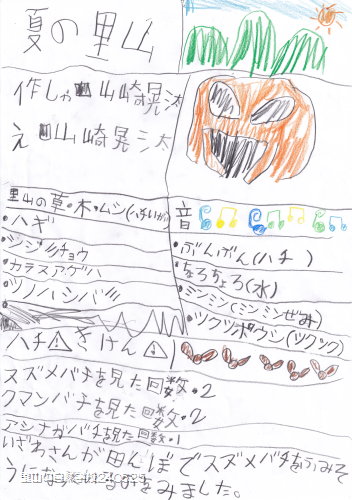 夏の里山
作しゃ 山崎晃汰
え 山崎晃汰
里山の草・木・ムシ(ハチいがい)
・ハギ
・シジミチョウ
・カラスアゲハ
・ツノハシバミ
音
・ぶんぶん(ハチ)
・ちょろちょろ(水)
・ミンミン(ミンミンぜみ)
・ツクツクボウシ(ツクツク)
ハチ⚠きけん⚠
スズメバチを見た回数・2
クマンバチを見た回数・2
アシナガバチを見た回数・1
いざわさんが田んぼでスズメバチをふみそ
うになっているのをみました。